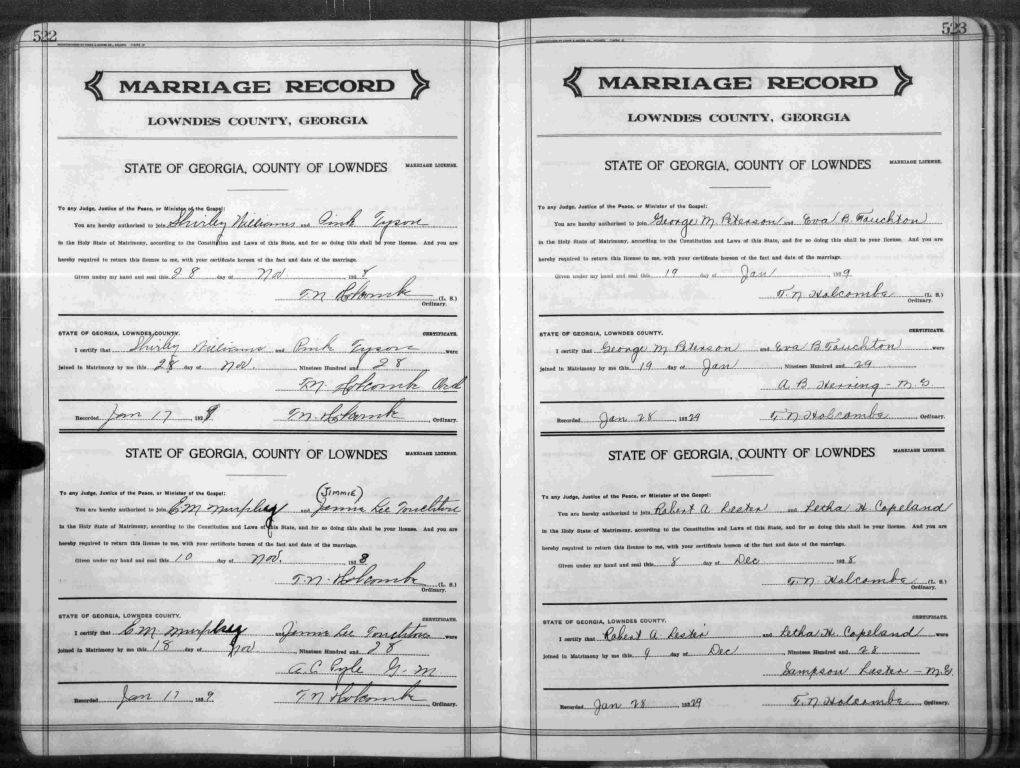 522
MARRIAGE RECORD
LOWNDES COUNTY, GEORGIA
STATE OF GEORGIA, COUNTY OF LOWNDES MARRIAGE LICENSE.
To any Judge, Justice of the Peace, or Minister of the Gospel:
You are hereby authorised to join Shirley Williams and Pink Tyson
in the Holy State of Matrimony, according to the Constitution and Laws of this State, and for so doing this shall be your license. And you are
hereby required to return this license to me, with your certificate hereon of the fact and date of the marriage.
Given under my hand and seal this 28 day of Nov 1928
T.N. Holcomb (L. S.)
Ordinary.
STATE OF GEORGIA, LOWNDES COUNTY. CERTIFICATE.
I certify that Shirley Williams and Pink Tyson were
joined in Matrimony by me this 28 day of Nov. Nineteen Hundred and 28
T.N. Holcomb Ord
Recorded Jan 17 1929 T.N. Holcomb, Ordinary.
STATE OF GEORGIA, COUNTY OF LOWNDES MARRIAGE LICENSE.
To any Judge, Justice of the Peace, or Minister of the Gospel:
(JIMMIE)
You are hereby authorised to join E M Murphy and Lee Touchton
in the Holy State of Matrimony, according to the Constitution and Laws of this State, and for so doing this shall be your license. And you are
hereby required to return this license to me, with your certificate hereon of the fact and date of the marriage.
Given under my hand and seal this 10 day of Nov. 1928
T.N. Holcomb (L. S.)
Ordinary.
STATE OF GEORGIA, LOWNDES COUNTY. CERTIFICATE.
I certify that E M Murphy and Lee Touchton were
joined in Matrimony by me this 18 day of Nov Nineteen Hundred and 28
A.C. Pyle G. M
Recorded Jan 17 1929 T.N. Holcomb Ordinary.
523
MARRIAGE RECORD
LOWNDES COUNTY, GEORGIA
STATE OF GEORGIA, COUNTY OF LOWNDES MARRIAGE LICENSE.
To any Judge, Justice of the Peace, or Minister of the Gospel:
You are hereby authorised to join George M Peterson and Eva B Touchton
in the Holy State of Matrimony, according to the Constitution and Laws of this State, and for so doing this shall be your license. And you are
hereby required to return this license to me, with your certificate hereon of the fact and date of the marriage.
Given under my hand and seal this 19 day of Jan 1929
T. N Holcombe (L. S.)
Ordinary.
STATE OF GEORGIA, LOWNDES COUNTY. CERTIFICATE.
I certify that George M Peterson and Eva B Touchton were
joined in Matrimony by me this 19 day of Jan Nineteen Hundred and 29
A B Herring - M G
Recorded Jan 28 1929 T. N Holcombe Ordinary.
STATE OF GEORGIA, COUNTY OF LOWNDES MARRIAGE LICENSE.
To any Judge, Justice of the Peace, or Minister of the Gospel:
You are hereby authorised to join Robert A Lester and Letha H Copeland
in the Holy State of Matrimony, according to the Constitution and Laws of this State, and for so doing this shall be your license. And you are
hereby required to return this license to me, with your certificate hereon of the fact and date of the marriage.
Given under my hand and seal this 8 day of Dec 1928
T. N. Holcombe (L. S.)
Ordinary.
STATE OF GEORGIA, LOWNDES COUNTY. CERTIFICATE.
I certify that Robert A Lester and Letha H. Copeland were
joined in Matrimony by me this 9 day of Dec Nineteen Hundred and 28
Simpson Lester - M.G.
Recorded Jan 28 1929 T. N Holcombe Ordinary.